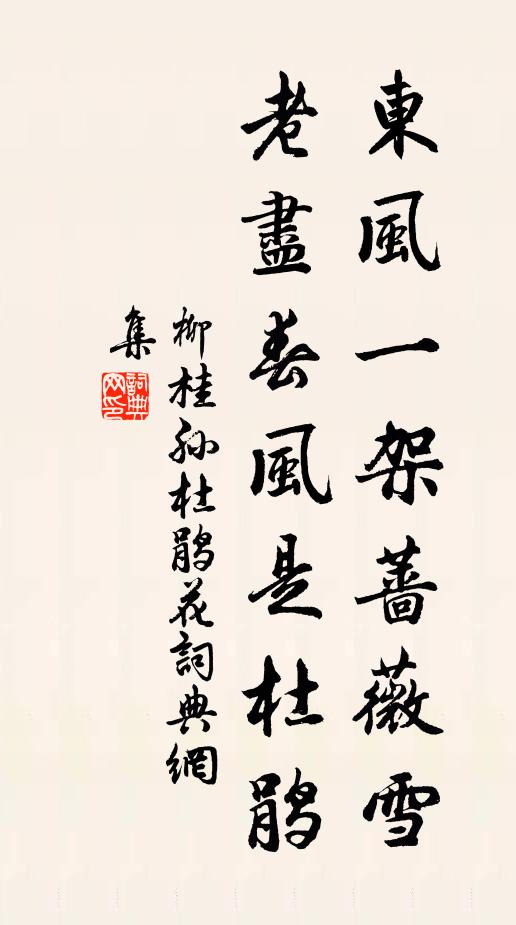 東風一架薔薇雪
老盡春風是杜鹃
柳桂孙杜鹃花詞典網
集
詞典网印